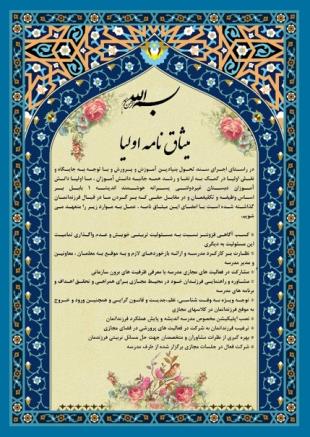 بسم الله
میثاق نامه اولیا
در راستای اجرای سند تحول بنیادین آموزش و پرورش و با توجه به جایگاه و
نقش اولیا در کمک به ارتقا و رشد همه جانبه دانش آموزان ، ما اولیا دانش
آموزان دبستان غیردولتی پسرانه هوشمند اندیشه 1 بابل بر
اساس وظیفه و تکلیفمان و در مقابل حقی که بر گردن ما در قبال فرزندانمان
گذاشته شده است با امضای این میثاق نامه، عمل به موارد زیر را متعهد می
شویم.
کسب آگاهی فزونتر نسبت به مسئولیت تربیتی خویش و عدم واگذاری تمامیت
این مسئولیت به دیگری
نظارت بر کارمدرسه و ارائه بازخوردهای لازم و به موقع به معلمان، معاونین
و مدیر مدرسه
مشارکت در فعالیت های مجازی مدرسه با معرفی ظرفیت های برون سازمانی
مشاوره و راهنمایی فرزندان خود در محیط مجازی برای همراهی و تحقق اهداف و
برنامه های مدرسه
توجه ویژه به وقت شناسی، نظم،جدیت و قانون گرایی و همچنین ورود و خروج
به موقع فرزندانمان در کلاسهای مجازی
نصب اپلیکیشن مخصوص مدرسه اندیشه و پایش عملکرد فرزندانمان
ترغیب فرزندانمان به شرکت در فعالیت های پرورشی در فضای مجازی
بهره گیری از نظرات مشاوران و متخصصان جهت حل مسائل تربیتی فرزندمان
شرکت فعال در جلسات مجازی برگزار شده از طرف مدرسه